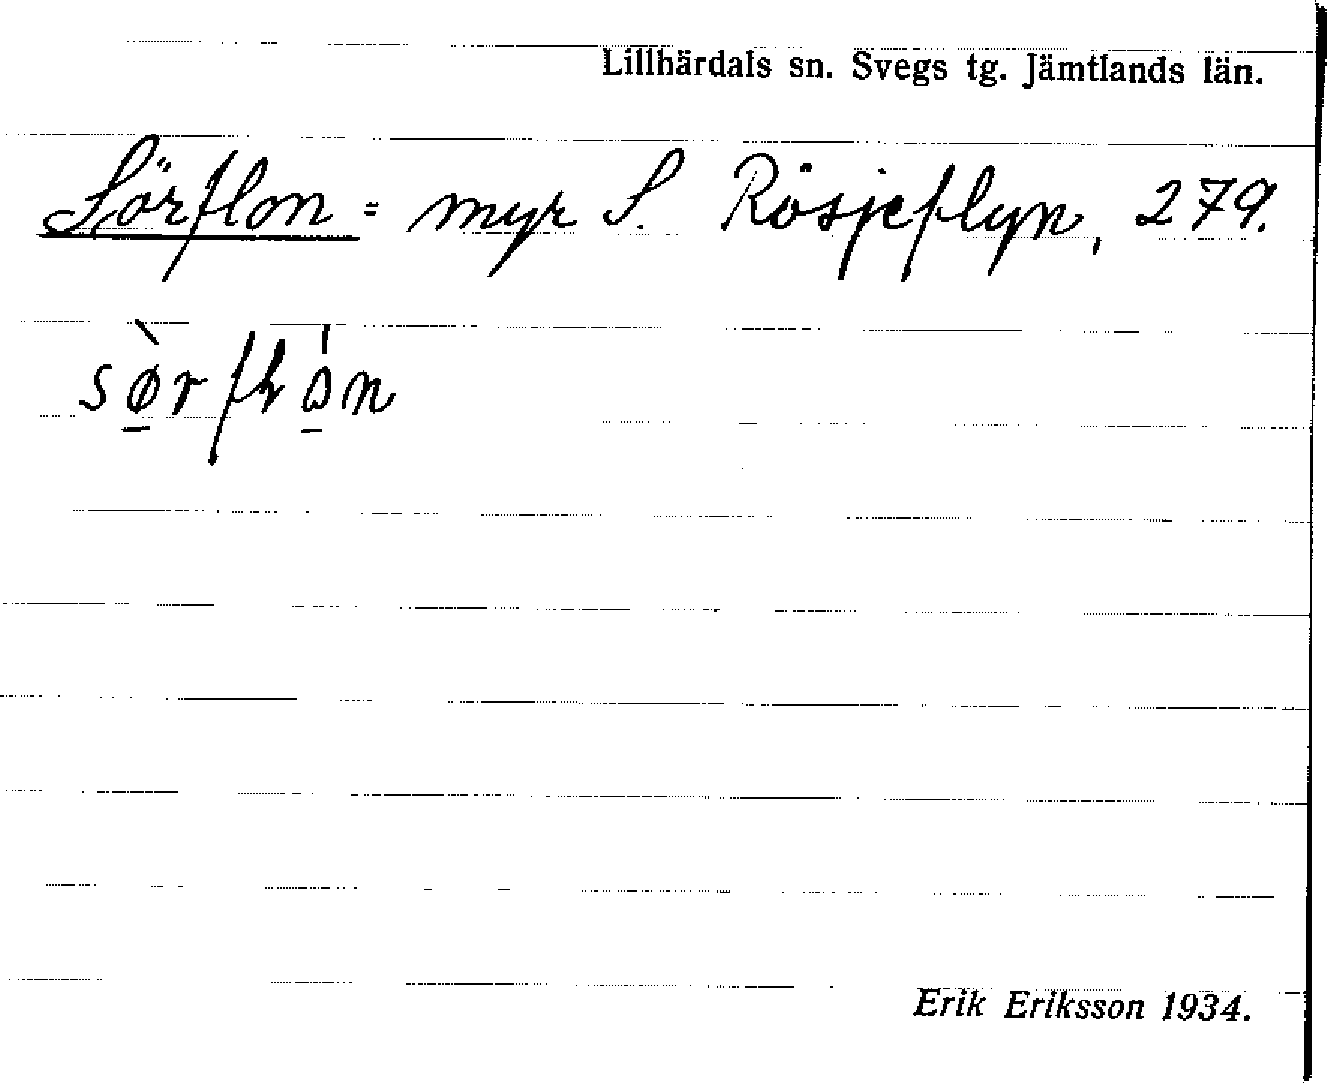 Lillhärdals sn. Svegs tg. Jämtlands län.
Sörflon = myr S. Rösjeflyn, 279.
Erik Eriksson 1934.